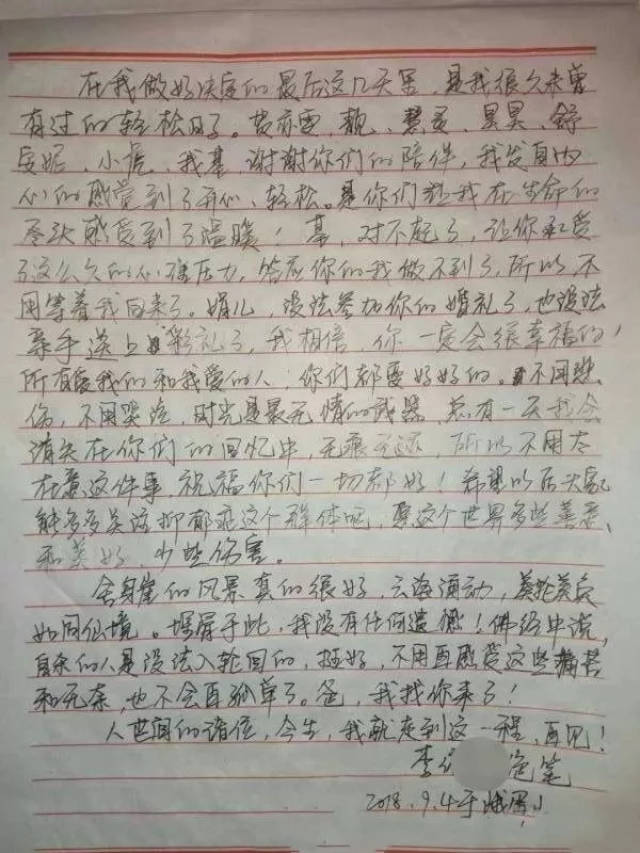 在我做好决定的最后这几天里，是我很久未曾
有过的轻松日子。黄亦雪、靓、慧灵、昊昊、舒
安妮、小虎、我基，谢谢你们的陪伴，我发自内
心的感觉到了开心、轻松。是你们让我在生命的
尽头感受到了温暖！基，对不起了，让你承受
了这么久的心理压力，答应你的我做不到了，所以不
用等着我回来了。娟儿，没法参加你的婚礼了，也没法
亲手送上彩礼了，我相信，你一定会很幸福的！
所有爱我的和我爱的人，你们都要好好的。不用悲
伤，不用哭泣，时光是最无情的武器，总有一天我会
消失在你们的回忆中，无痕无迹，所以不用太
在意这件事，祝福你们一切都好！希望以后大家
能多多关注抑郁症这个群体吧，愿这个世界多些善意、
和美好，少些伤害。
舍身崖的风景真的很好，云海涌动，美轮美奂
如同仙境。埋尸于此，我没有任何遗憾！佛经中说，
自杀的人是没法入轮回的，挺好，不用再感受这些痛苦
和无奈，也不会再孤单了。爸，我找你来了！
人世间的诸位，今生，我就走到这一程，再见！
李 笔
2018.9.4于峨眉山